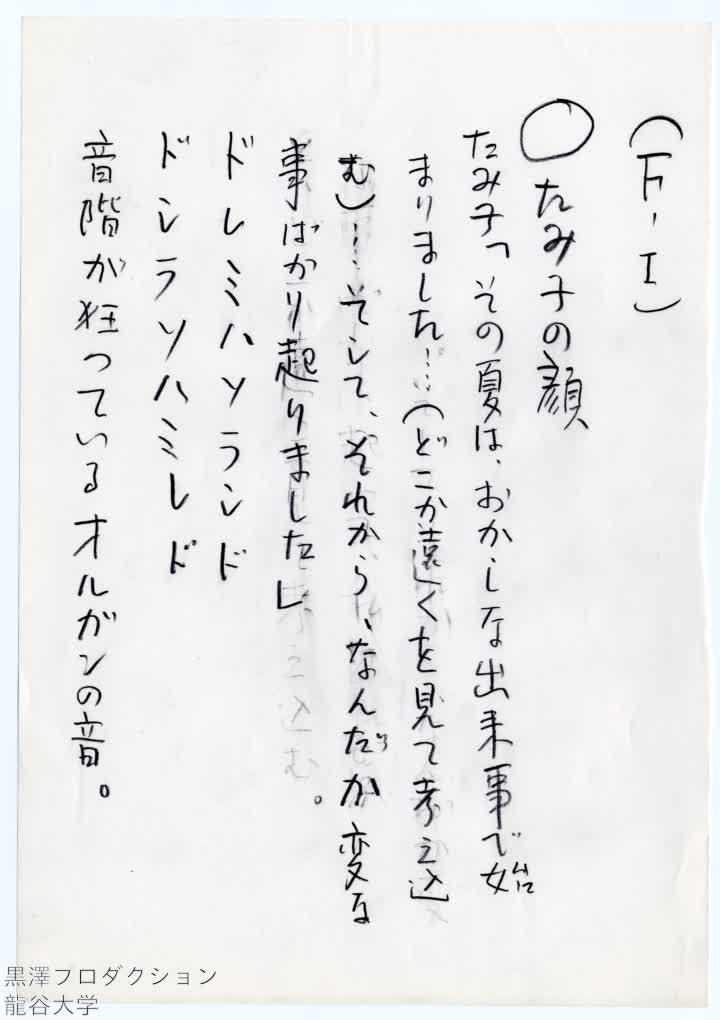 (F-I)
○たみ子の顔
たみ子「その夏は、おかしな出来事で始
まりました……(どこか遠くを見て考え込
む)……そして、それから、なんだか変な
事ばかり起りました」
ドレミハソラシド
ドシラソハミレド
音階が狂っているオルガンの音。
黒澤プロダクション
龍谷大学